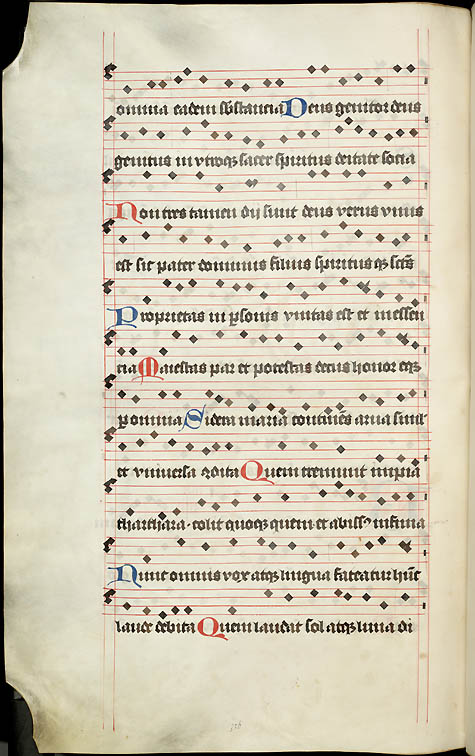 omnia eadem sb̃stancia Deus genitor deus
genitus in vtroqꝫ sacer spiritus deitate socia
Non tres tamen dij sunt deus verus vnus
est sic pater dominus filius spiritus qꝫ sc̃s
Proprietas in ꝑsonis vnitas est et in essen
cia Maiestas par et potestas decus honor eqꝫ
ꝑ omnia Sidera maria continẽs arua simĺ
et vniuersa ꝯdita Quem tremunt impia
tharthara colit quoqꝫ quem et abissꝰ infima
Nunc omnis vox atqꝫ lingua fateatur hũc
laude debita Quem laudat sol atqꝫ luna di